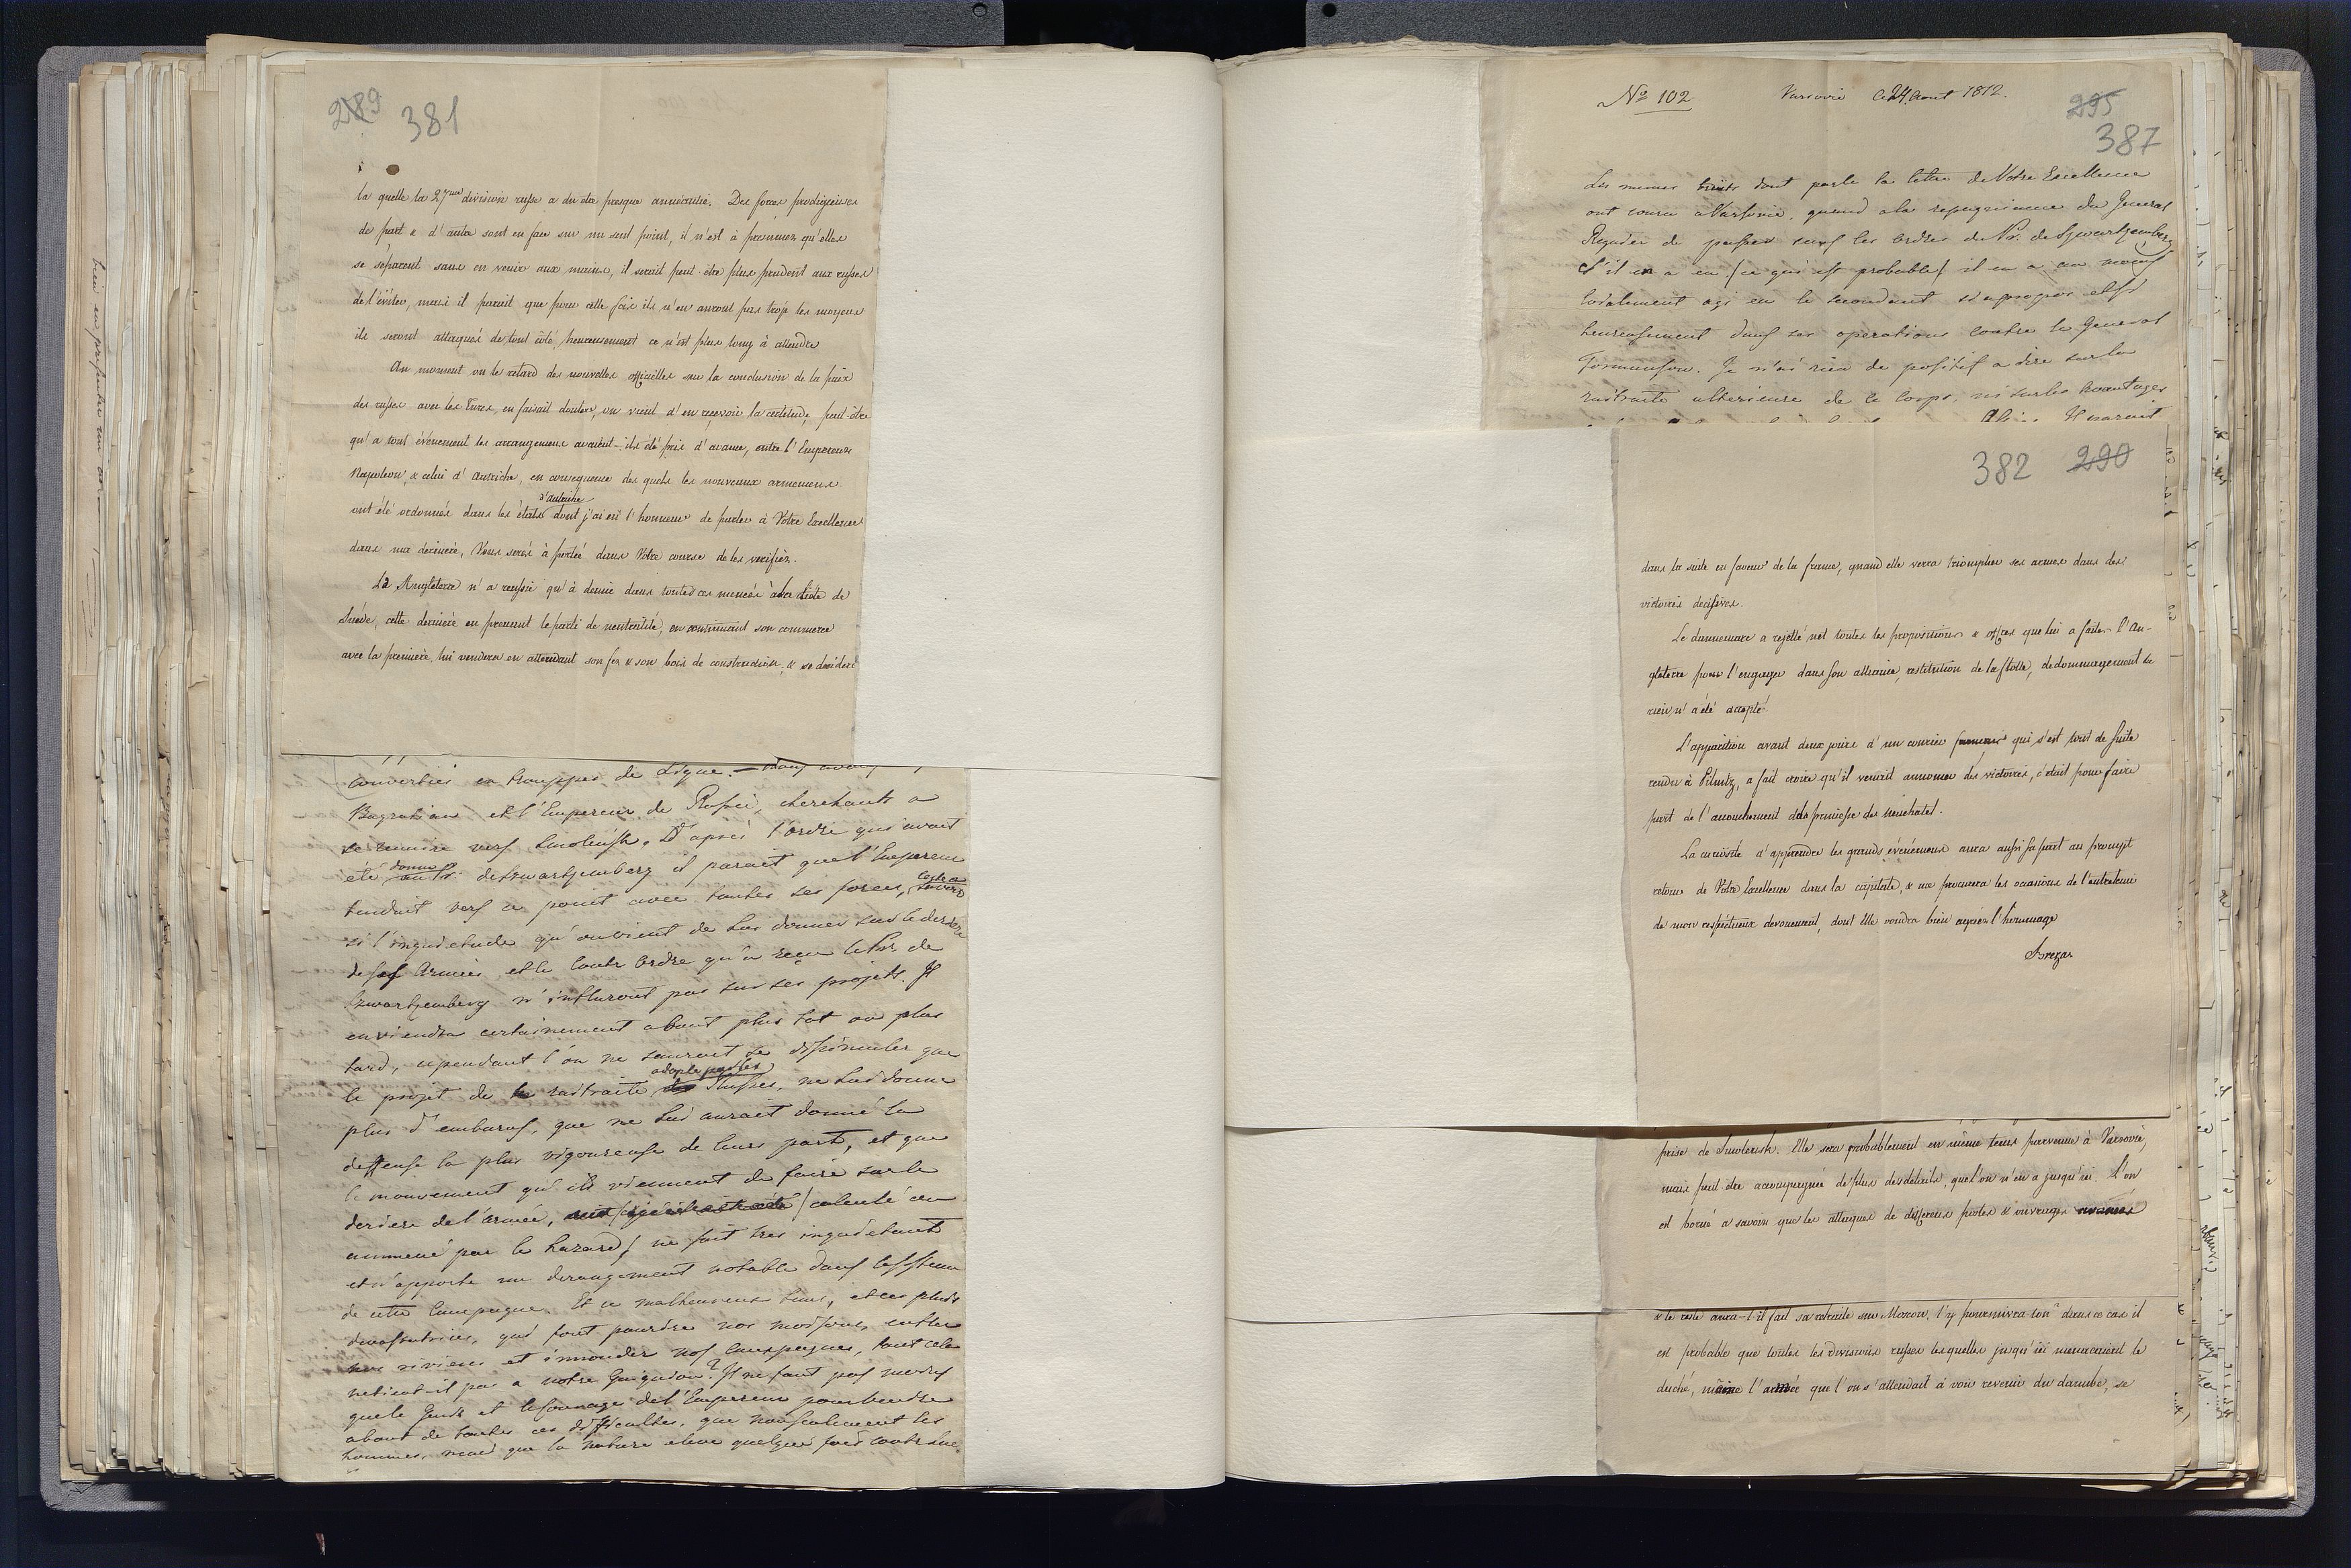 289 381
la quelle la 27me division russe a du être presque anneantie. Des forces prodigieuses
de part & d'autre sont en face sur un seul point, il n'est à présumer qu'elles
se séparent sans en venir aux mains, il serait peut-être plus prudent aux russes
de l'éviter, mais il parait que pour cette fois ils n'en auront pas trop les moyens
ils seront attaqués de tout côté, heureusement ce n'est plus long à attendre
Au moment où le retard des nouvelles officielles sur la conclusion de la paix
des russes avec les Turcs, en faisait douter, on vient d'en reçevoir la certitude, peut-être
qu'a tout événement les arrangemens avaient-ils été pris d'avance, entre l'Empereur
Napoleon, & celui d'Autriche, en consequence des quels les nouveaux armemens
d'autriche
ont été ordonnés dans les états dont j'ai eû l'honneur de parler à Votre Excellence
dans ma derniere, Vous serés à portée dans Votre course de les verifier.
La Angleterre n'a reussi qu'à demie dans toutes ces menées à la diéte de
Suéde, cette derniére en prennant le parti de neutralité, en continuant son commerce
avec la premiére, lui vendera en attendant son fer & son bois de construction, & se decidera
converties en trouppes de Ligne. – Nous avons
Bagration et l'Empereur de Russie, cherchants a
se reunire vers Smolensk. D'après l'ordre qui avait
donné
été au Pr: de Szwartzemberg il parait que l'Empereur
tendait vers ce point avec toutes ses forces, reste a savoir
si l'inquietude qu'on vient de Lui donner sur le derriere
de ses Armées, et le Contr Ordre qu'a reçu le Pr de
Szwartzemberg n'influront pas sur ses projets. Il
en viendra certainement about plus tot ou plus
tard, cependant l'on ne saurait se dissimuler que
adopté par les
le projet de la raitraite des Russes, ne Lui donne
plus d'embaras, que ne Lui aurait donné la
deffense la plus vigoureuse de leur part, et que
le mouvement qu'ils viennent de faire sur le
derriere de l'armée, soit calculé ou
ammené par le hazard / ne soit tres inquietant
et n'apporte un derangement notable dans le systeme
de cette Campagne. Et ce malheureux tems, et ces pluies
devastatrices, qui font pourire nos moissons, enfler
nos rivieres et innonder nos Campagnes, tout cela
netient-il pas a notre Guignon? Il ne faut pas moins
que le Genie et le Courage de l'Empereur pour vendre
about de toutes ces difficultés, que non seulement les
hommes, mais que la nature eleve quelques fois contre Lui.
No 102 Varsovie Ce 24. Aout 1812.
295
387
Les memes bruits dont parle la lettre de Votre Excellence
ont couru a Varsovie, quand a la repugnance du General
Regnier de passer sous les ordres du Pr: de Szwartzemberg
S'il en a eu / ce qui est probable / il en a au moins
loialement agi en le secondant si apropos et si
heureusement dans ses operations contre le General
Tormansow. Je n'ai rien de positif a dire sur la
raitraite ulterieure de ce Corps, ni sur les avantages
382 290
dans la suite en faveur de la france, quand elle verra triompher ses armes dans des
victoires decisives.
Le dannemarc a rejetté net toutes les propositions & offres que lui a faites l'An-
gleterre pour l'engager dans son alliance, restitution de la flotte, dedommagement &c
rien n'a été accepté.
L'apparition avant deux jours d'un courier qui s'est tout de suite
rendu à Pilnitz, a fait croire qu'il venait annoncer des victoires, c'était pour faire
part de l'accouchement de la princesse de neuchatel.
La curiosité d'apprendre les grands événemens aura aussi sa part au prompt
retour de Votre Excellence dans la capitale, & me procurera les occasions de l'entretenir
de mon respectueux devouement, dont Elle voudra bien agréer l'hommage
Breza
prise de Smolensk. Elle sera probablement en même tems parvenue à Varsovie,
mais peut-être accompagnée de plus des détails, que l'on n'en a jusqu'ici. L'on
est borné a savoir que les attaques de differens postes & ouvrages avancés
& le reste aura-t-il fait sa retraite sur Moscou, l'y poursuivra-t-on? dans ce cas il
est probable que toutes les divisions russes lesquelles jusqu'ici menacaient le
duché, même l'armée que l'on s'attendait à voir revenir du danube, se